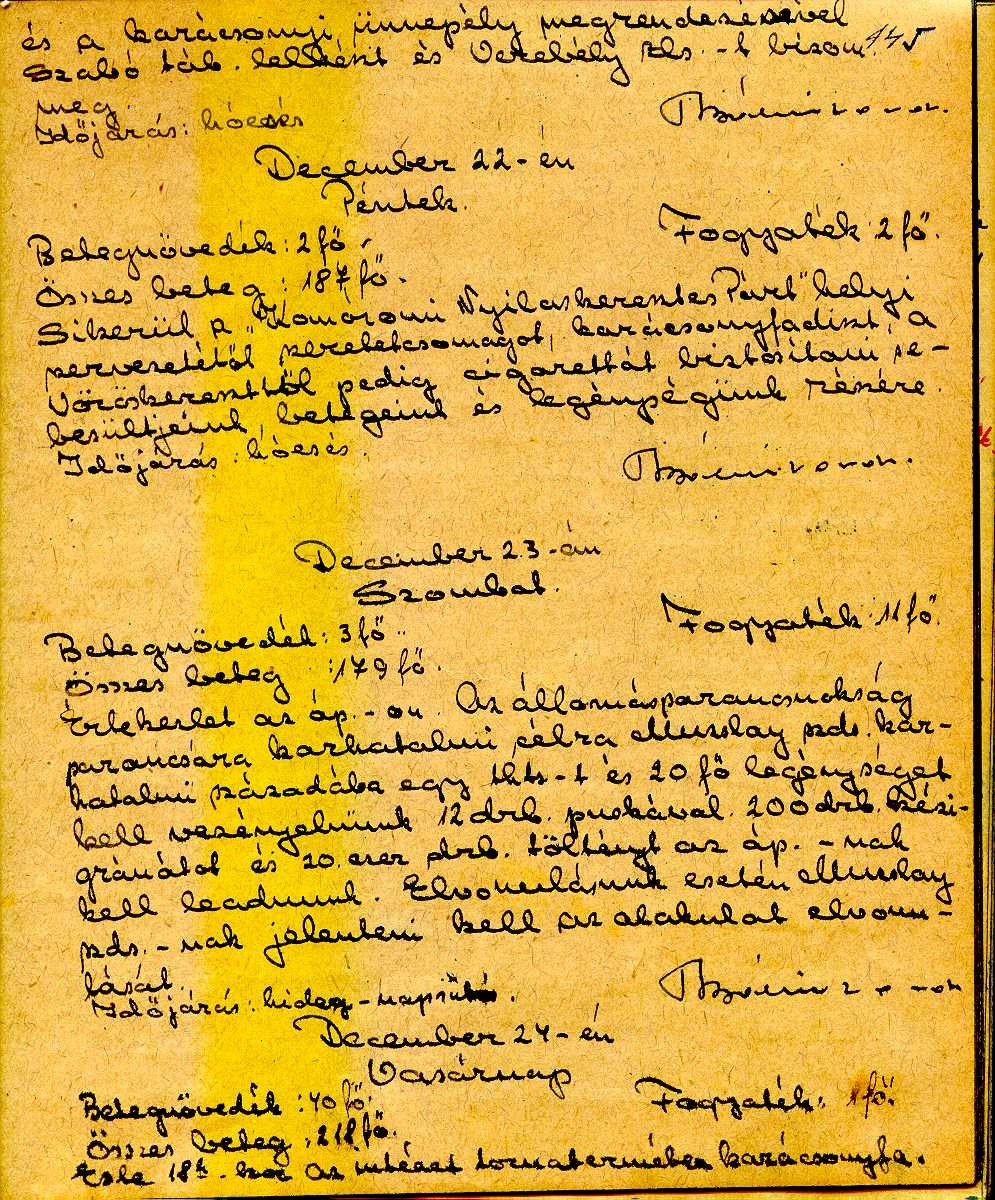 és a karácsonyi ünnepély megrendezésével
Szabó táb. lelkészt és Verebély zls.-t bízom
meg.
Időjárás: hóesés
December 22-én
Péntek.
Betegnövedék: 2 fő. Fogyaték 2 fő.
Összes beteg : 187 fő.
Sikerül a „Komáromi Nyilaskeresztes Párt" helyi
szervezetétől szeretetcsomagot, karácsonyfadíszt, a
Vöröskereszttől pedig cigarettát biztosítani se-
besültjeink, betegeink és legénységünk részére.
Időjárás: hóesés.
December 23-án
Szombat.
Betegnövedék: 3 fő. Fogyaték 11 fő.
Összes beteg :179 fő.
Értekezlet az áp.-on. Az állomásparancsnokság
parancsára karhatalmi célra Muzslay szds. kar-
hatalmi századába egy thts-t és 20 fő legénységet
kell vezényelnünk 12 drb. puskával. 200 drb. kézi-
gránátot és 20.ezer drb. töltényt az áp.-nak
kell leadnunk. Elvonulásunk esetén Muzslay
szds.-nak jelenteni kell az alakulat elvonu-
lását.
Időjárás: hideg-napsütés.
December 24-én
Vasárnap
Betegnövedék :40 fő. Fogyaték: 1 fő.
Összes beteg :218 fő.
Este 18h-kor az intézet tornatermében karácsonyfa.